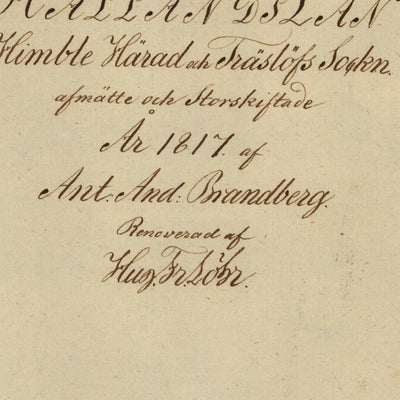 HALLANDSLÄN
Himble Härad och Träslöfs Sockn.
afmätte och Storskiftade
År 1817. af
Ant: And: Brandberg.
Renoverad af
Hug. Fr. Löhr.